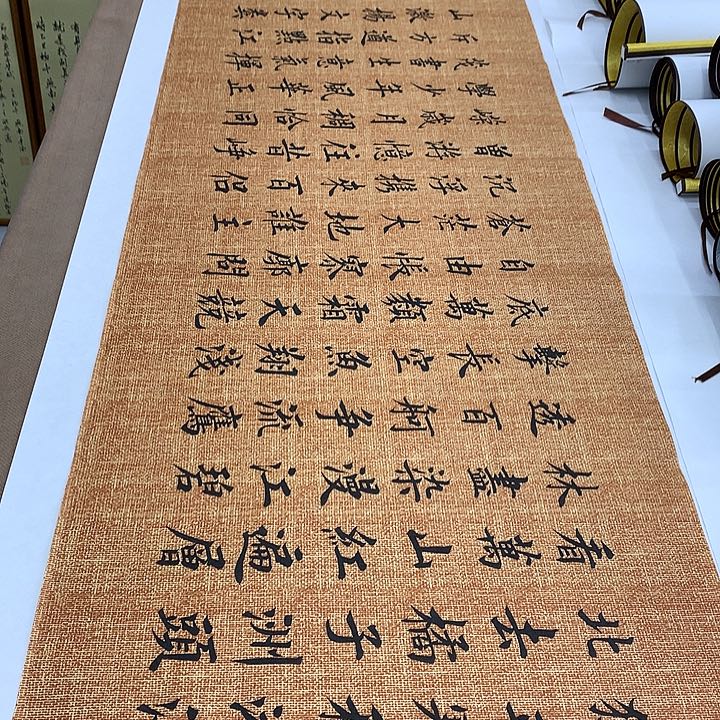 北去橘子洲頭
看萬山紅遍層
林盡染漫江碧
透百舸争流鷹
擊長空魚翔淺
底萬類霜天競
自由悵寥廓問
蒼茫大地誰主
沉浮携來百侶
曾游憶往昔崢
嶸歲月稠恰同
學少年風華正
茂書生意氣揮
斥方遒指點江
山激揚文字糞